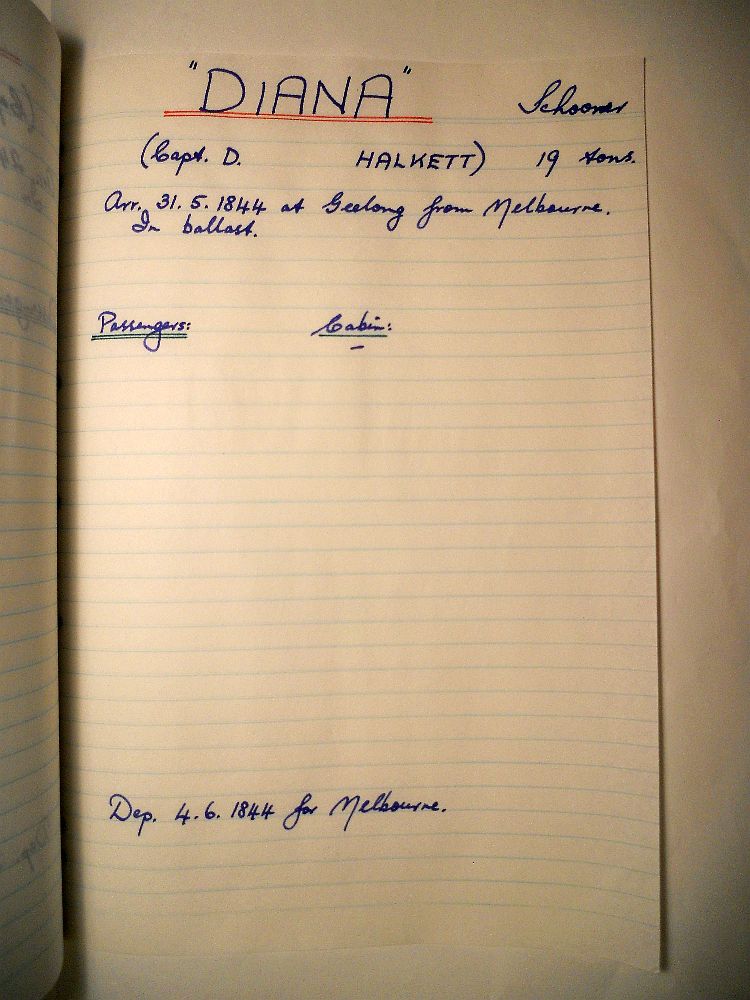 "DIANA" Schooner
(Capt. D. HALKETT) 19 tons.
Arr. 31.5.1844 at Geelong from Melbourne.
In ballast.
Passengers: Cabin:
–
Dep. 4.6.1844 for Melbourne.